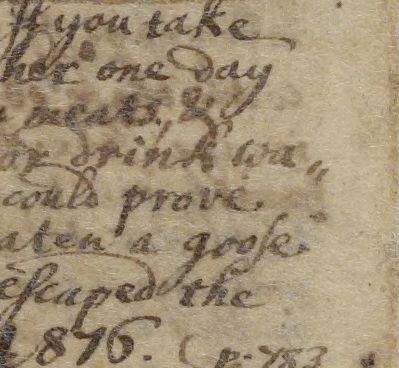 If you take
her one day
meats, &
or drink wa„
could prove
aten a goose
escaped the
876. (p. 783